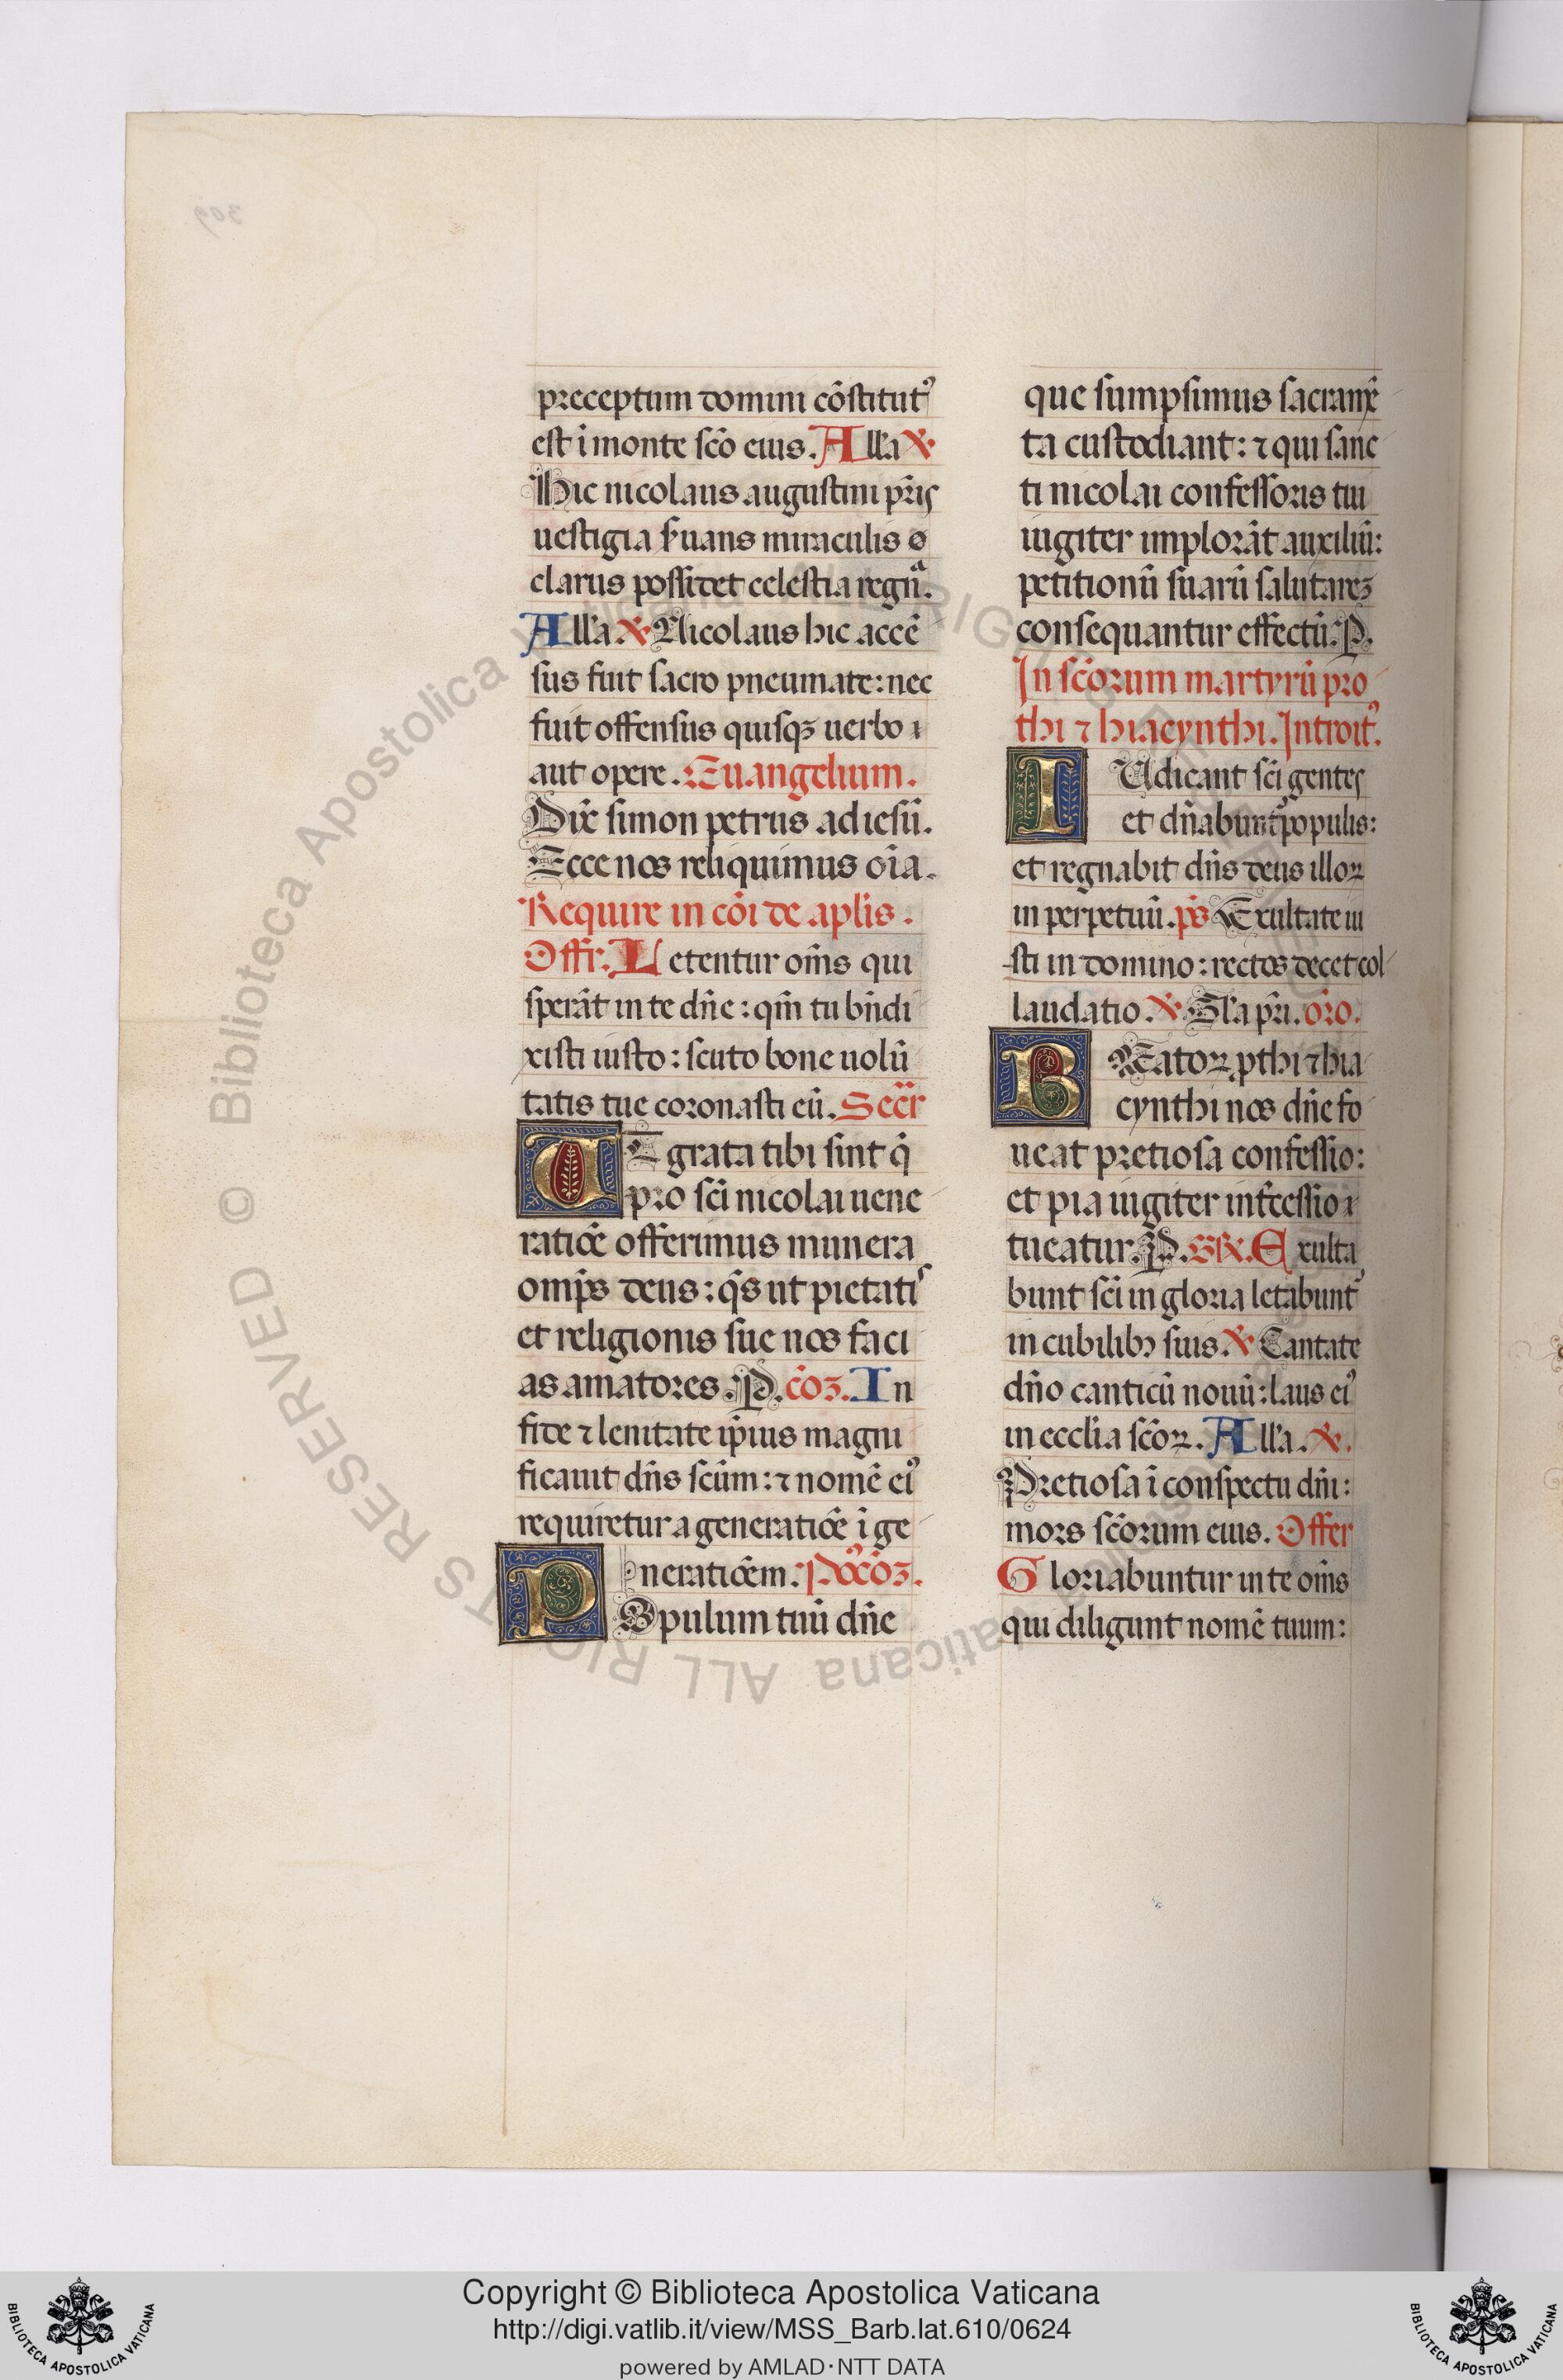 preceptum domini cōstitutꝰ
est ī monte scō eius. Alla ℣.
Hic nicolaus augustini pr̄is
uestigia ẜuans miraculis
clarus possidet celestia regn̄a.
Alla ℣ Nicolaus hic accē
sus fuit sacro pneumate: nec
fuit offensus quisqꝫ uerbo
aut opere. Euangelium.
Dix̄ simon petrus ad iesū.
Ecce nos reliquimus oīa.
Require in cōi de aplīs.
Offr. Letentur om̄s qui
sperāt in te dn̄e: qm̄ tu bn̄di
xisti iusto: scuto bone uolū
tatis tue coronasti eū. Secr̄
UT grata tibi sint q̄
pro sci nicolai uene
ratiōe offerimus munera
omp̄s deus: q̄s ut pietatis
et religionis sue nos faci
as amatores. P. cōꝫ. In
fide ⁊ lenitate ip̄ius magni
ficauit dn̄s scūm: ⁊ nomē eiꝰ
requiretur a generatiōe ī ge
neratiōem. Pꝰcōꝫ.
POpulum tuū dn̄e
que sumpsimus sacramē
ta custodiant: ⁊ qui sanc
ti nicolai confessoris tui
iugiter implorāt auxiliū:
petitionū suarū salutareꝫ
consequantur effectū. P.
In scōrum martyrū pro
thi ⁊ hiacynthi. Introitꝰ.
IUdicant sci gentes
et dn̄abunt̉ populis:
et regnabit dn̄s deus illoꝝ
in perpetuū. ps̄ Exultate iu
sti in domino: rectos decet col
laudatio. ℣. Gla pri. or̄o.
BEatoꝝ ꝓthi ⁊ hia
cynthi nos dn̄e fo
ueat pretiosa confessio:
et pia iugiter intcessio
tueatur. P. GR. Exulta
bunt sci in gloria letabunt̉
in cubilibꝫ suis. ℣ Cantate
dn̄o canticū nouū: laus eiꝰ
in ecclīa scōꝝ. Alla. ℣.
Pretiosa ī conspectu dn̄i:
mors scōrum eius. Offer
Gloriabuntur in te om̄s
qui diligunt nomē tuum:
Copyright © Biblioteca Apostolica Vaticana
http://digi.vatlib.it/view/MSS_Barb.lat.610/0624
powered by AMLAD·NTT DATA
BIBLIOTECA APOSTOLICA VATICANA
BIBLIOTECA APOSTOLICA VATICANA
© Biblioteca Apostolica Vaticana ALL RIGHTS RESERVED
309